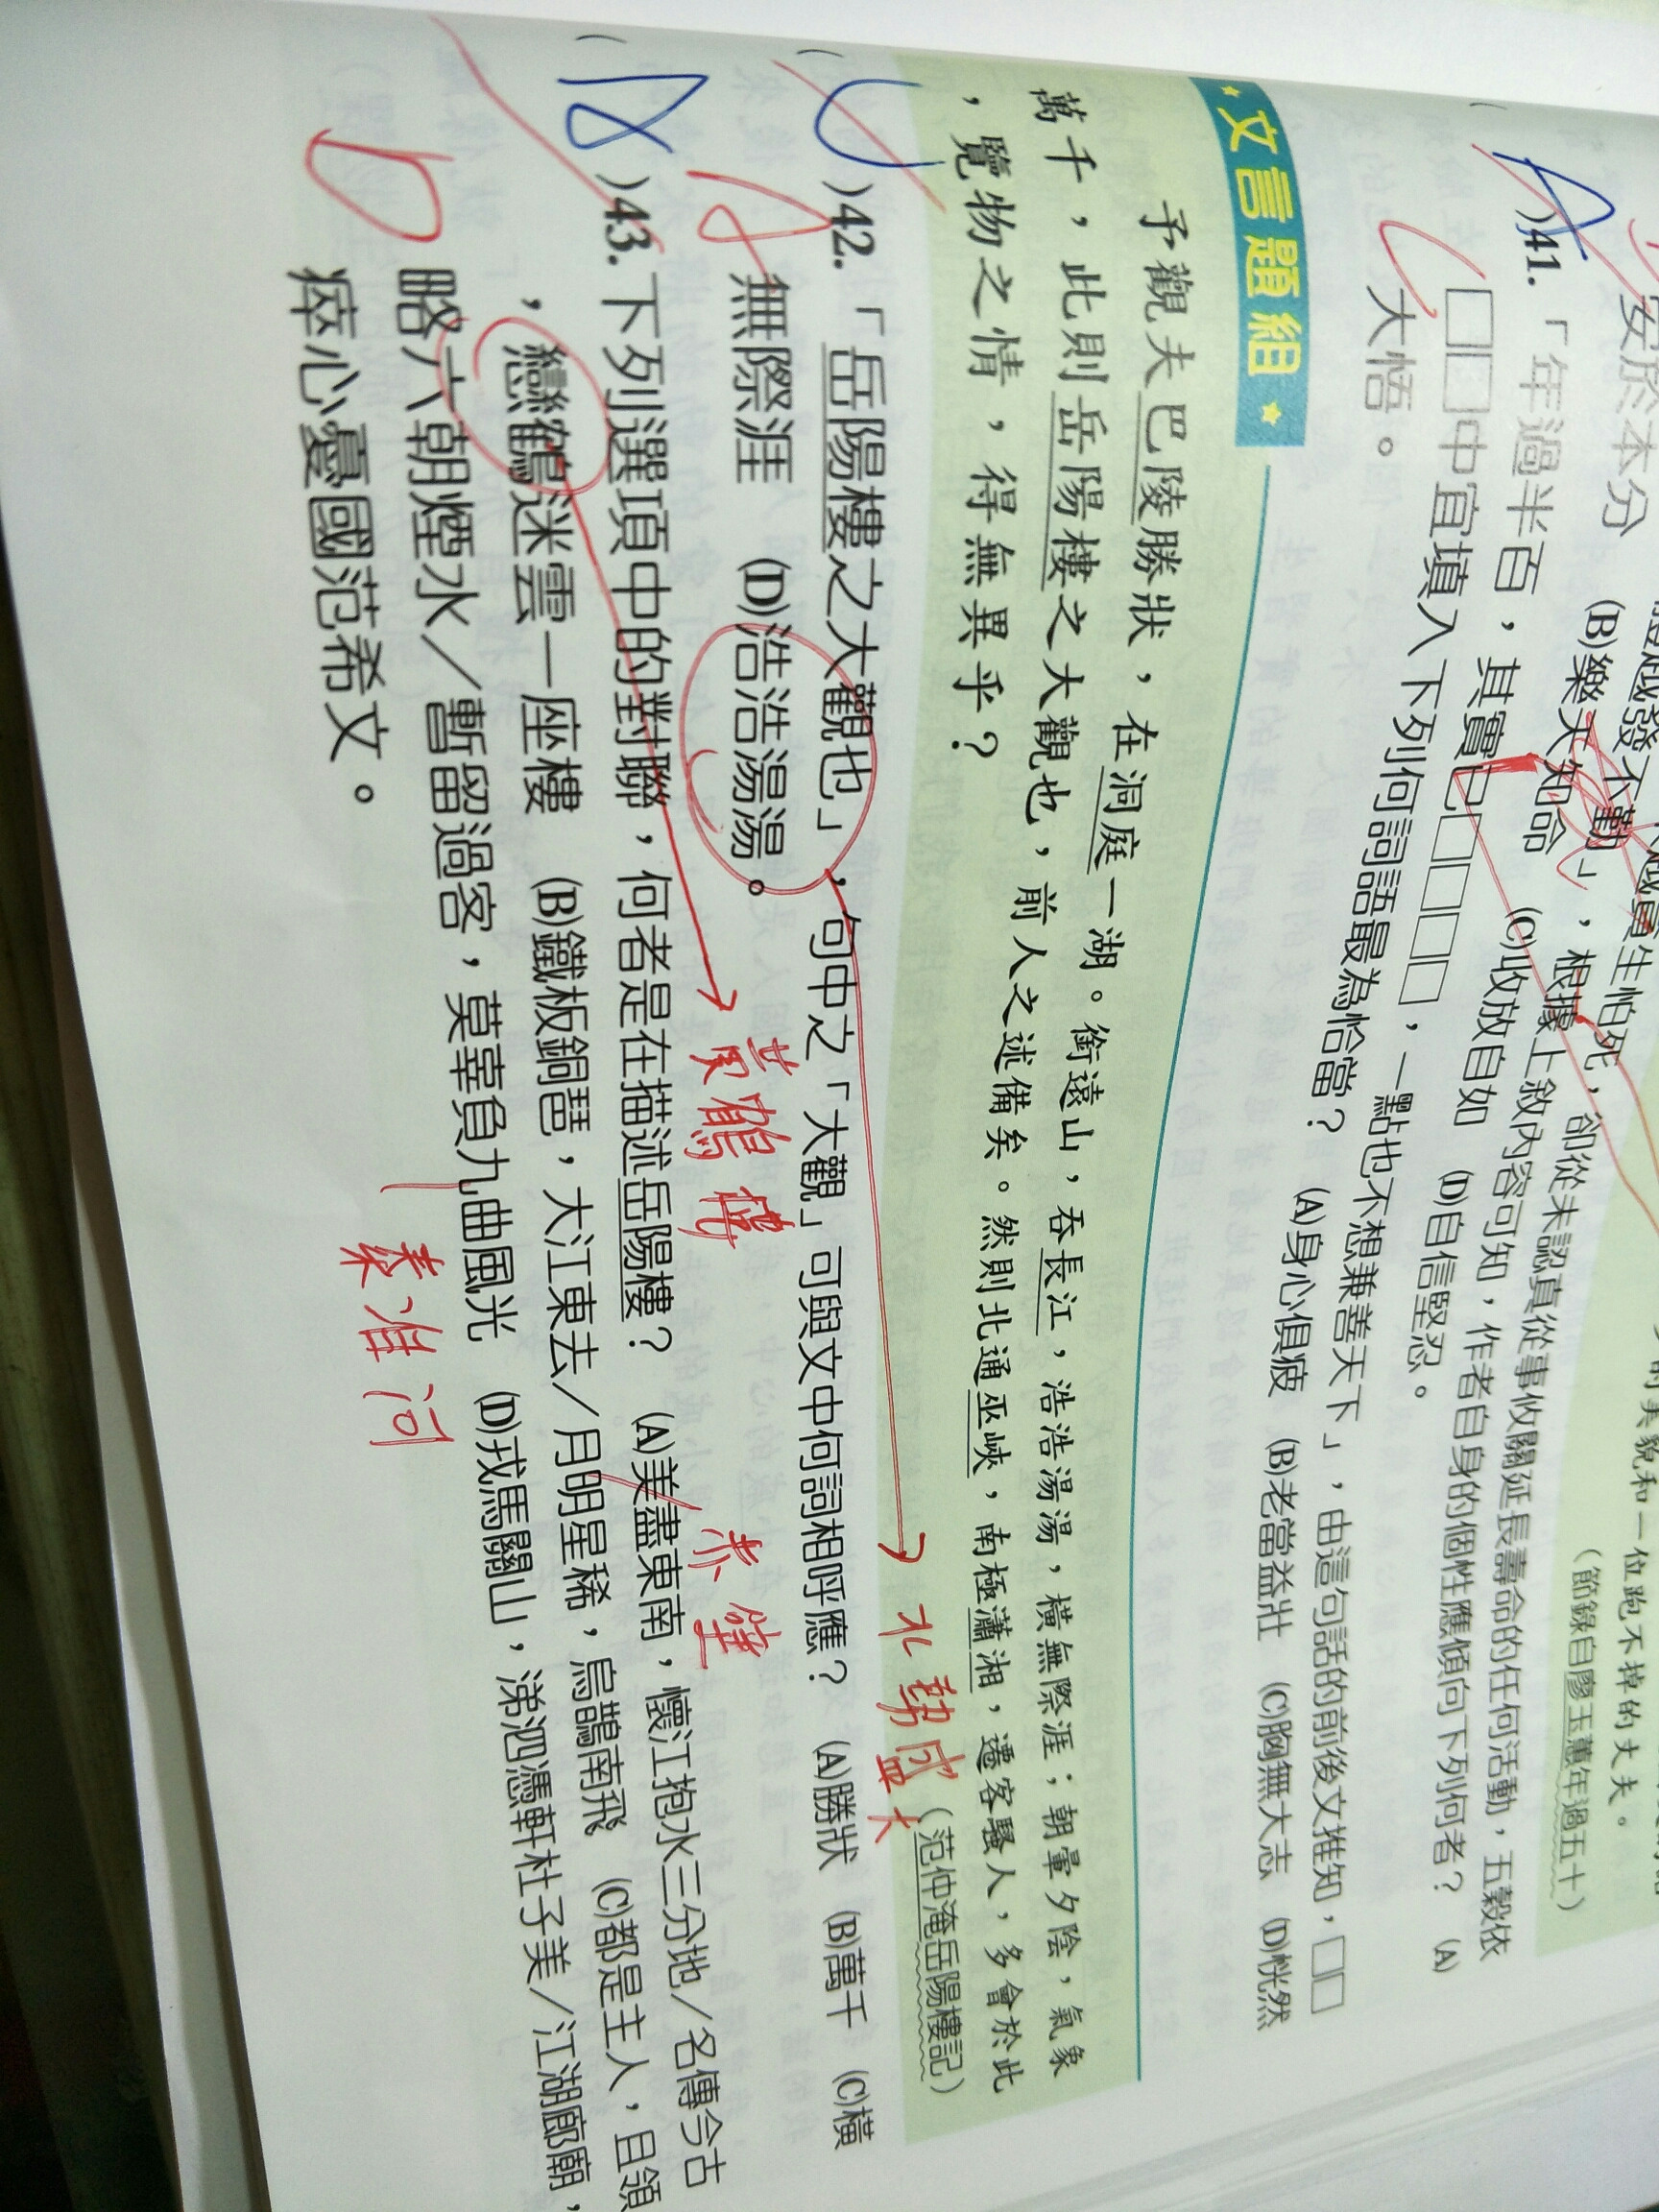 安於本分　(B)樂天知命　(C)收放自如　(D)自信堅忍。
位跑不掉的丈夫。
（節錄自廖玉蕙年過五十）
A
)41.「年過半百，其實已□□□□□，一點也不想兼善天下」，由這句話的前後文推知，□□
□□中宜填入下列何詞語最為恰當？　(A)身心俱疲　(B)老當益壯　(C)胸無大志　(D)恍然
大悟。
文言題組
予觀夫巴陵勝狀，在洞庭一湖。銜遠山，吞長江，浩浩湯湯，橫無際涯；朝暈夕陰，氣象
萬千，此則岳陽樓之大觀也，前人之述備矣。然則北通巫峽，南極瀟湘，遷客騷人，多會於此
，覽物之情，得無異乎？
（范仲淹岳陽樓記）
水勢盛大
)42.「岳陽樓之大觀也」，句中之「大觀」可與文中何詞相呼應？　(A)勝狀　(B)萬千　(C)橫
無際涯　(D)浩浩湯湯。
黃鶴樓
赤壁
)43.下列選項中的對聯，何者是在描述岳陽樓？　(A)美盡東南，懷江抱水三分地／名傳今古
，戀鶴迷雲一座樓　(B)鐵板銅琶，大江東去／月明星稀，烏鵲南飛　(C)都是主人，且領
略六朝煙水／暫留過客，莫辜負九曲風光　(D)戎馬關山，涕泗憑軒杜子美／江湖廊廟，
瘁心憂國范希文。
秦淮河